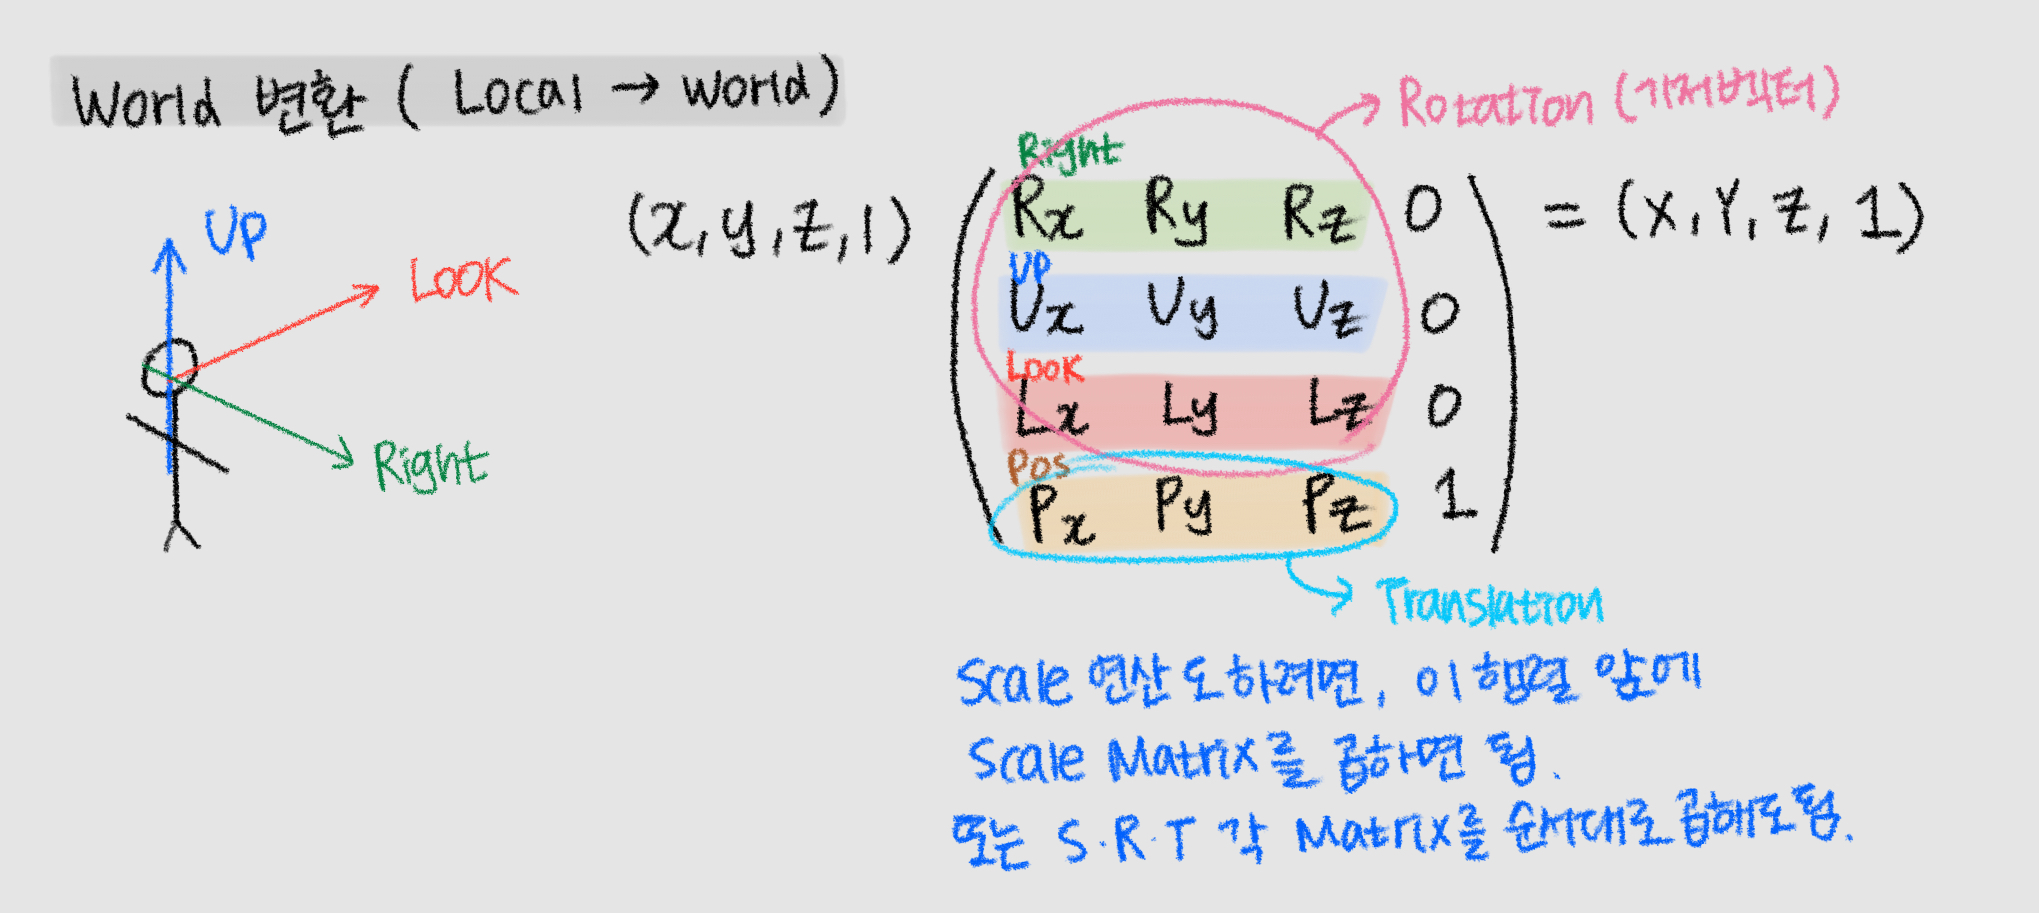 World 변환 ( Local → world)
Rotation (기저벡터)
UP
LOOK
Right
(x, y, z, 1)
Right
Rx Ry Rz 0
UP
Ux Uy Uz 0
LOOK
Lx Ly Lz 0
Pos
Px Py Pz 1
= (X, Y, Z, 1)
Translation
Scale 연산도하려면, 이 행렬 앞에
Scale Matrix를 곱하면 됨.
또는 S·R·T 각 Matrix를 순서대로 곱해도됨.